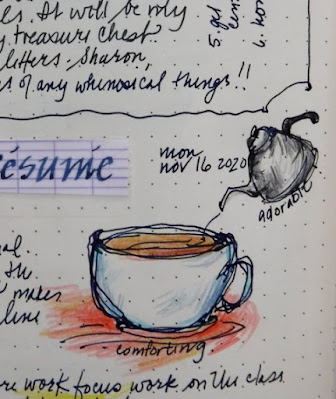 les. It will be my
y treasure chest.
litters - Sharon,
es of any whimsical things!!
5. gel
6. 
résumé
mon
nov 16 2020
adorable
nal.
the
makes
line
comforting.
ore work focus work on the class